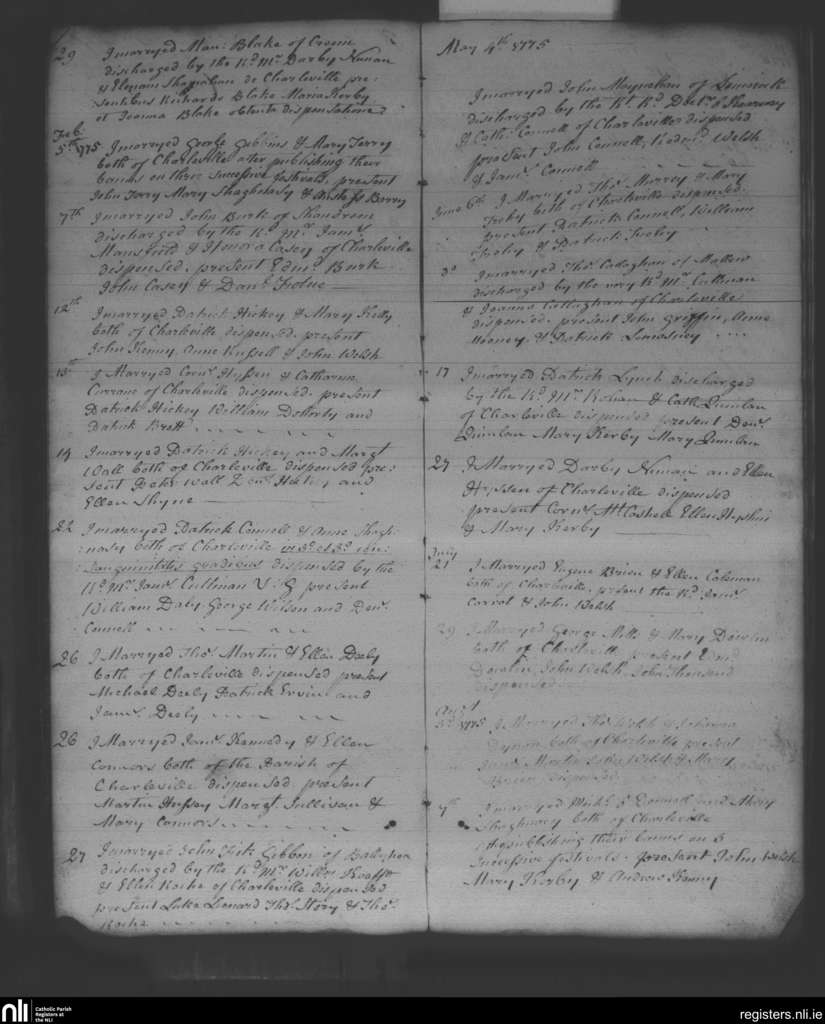 29 I marryed Mau: Blake of Croom
discharged by the Rd Mr Darby Nunan
& Elenam Shanahan de Charleville pre:
sentibus Richardo Blake Maria Kerby
et Joanna Blake obtenta dispensatione
Feb.
5th 1775 I marryed George Gibbins & Mary Terry
both of Charleville after publishing their
banns on three successive festivals, present
John Terry Mary Shaghnasy & Barry
7th I marryed John Burk of
discharged by the Rd Mr Jams
& Honora Casey of Charleville
dispensed. present Edmd Burk
John Casey & Danl
12th I marryed Patrick Hickey & Mary Kelly
both of Charleville dispensed. present
John Kenny Anne Russell & John Welsh
13th I Marryed Corns Hyssen & Catharin
Currane of Charleville dispensed. present
Patrick Hickey William Doherty and
Patrick Brett
19 I marryed Patrick Hickey and Margt
Wall both of Charleville dispensed pre:
sent Peter Wall and
Ellen Shyne
22 I marryed Patrick Connell & Anne Shagh:
nasy both of Charleville in 3o et 3o con:
sanguinitatis gradibus dispensed by the
Rd Mr Jams Cullinan V: G present
William Daly George Wilson and Dens
Connell
26 I Marryed Thos Martin & Ellen Deely
both of Charleville dispensed present
Michael Deely Patrick Ervin and
Jams Deely
26 I Marryed Jams Kennedy & Ellen
Connors both of the Parish of
Charleville dispensed present
Martin Hussey Margt Sullivan &
Mary Connors
27 I marryed John Fitz Gibbon of
discharged by the Rd Mr Willm
& Ellen Roche of Charleville dispensed
present Luke Leonard Thos Story & Thos
Roche
May 4th 1775
I marryed John Moynahan of Limerick
discharged by the Rt Rd Doctr
& Cath: Connell of Charleville dispensed
present John Connell, Redmd Welsh
& Jams Connell
June 6th I Marryed Thos Morrey & Mary
both of Charleville dispensed.
present Patrick Connell, William
& Patrick
do I marryed Thos Callaghan of Mallow
discharged by the very Rd Mr Cullinan
& Joanna Callaghan of Charleville
dispensed. present John Griffin, Anne
Mooney & Patrick
17 I marryed Patrick Lynch discharged
by the Rd Mr & Cath: Quinlan
of Charleville dispensed present Dens
Quinlan Mary Kerby Mary Quinlan
27 I Marryed Darby Nunan and Ellen
Hyssen of Charleville dispensed
present Corns McCoshele Ellen
& Mary Kerby
July
21 I Marryed Eugene Brien & Ellen Coleman
both of Charleville. present the Rd Jams
Carrol & John Welsh
29 I Marryed George & Mary Dowlin
both of Charleville present Edmd
Dowlin, John Welsh, John
dispensed
Augst
3d 1775 I Marryed Thos Welsh &
both of Charleville present
Martin Welsh & Mary
Brien dispensed
7th I marryed Michl Connell and Mary
Shaghnasy both of Charleville
publishing their banns on 3
successive festivals. present John Welsh
Mary Kerby & Andrew Kenny
nli Catholic Parish
Registers at
the NLI
registers.nli.ie